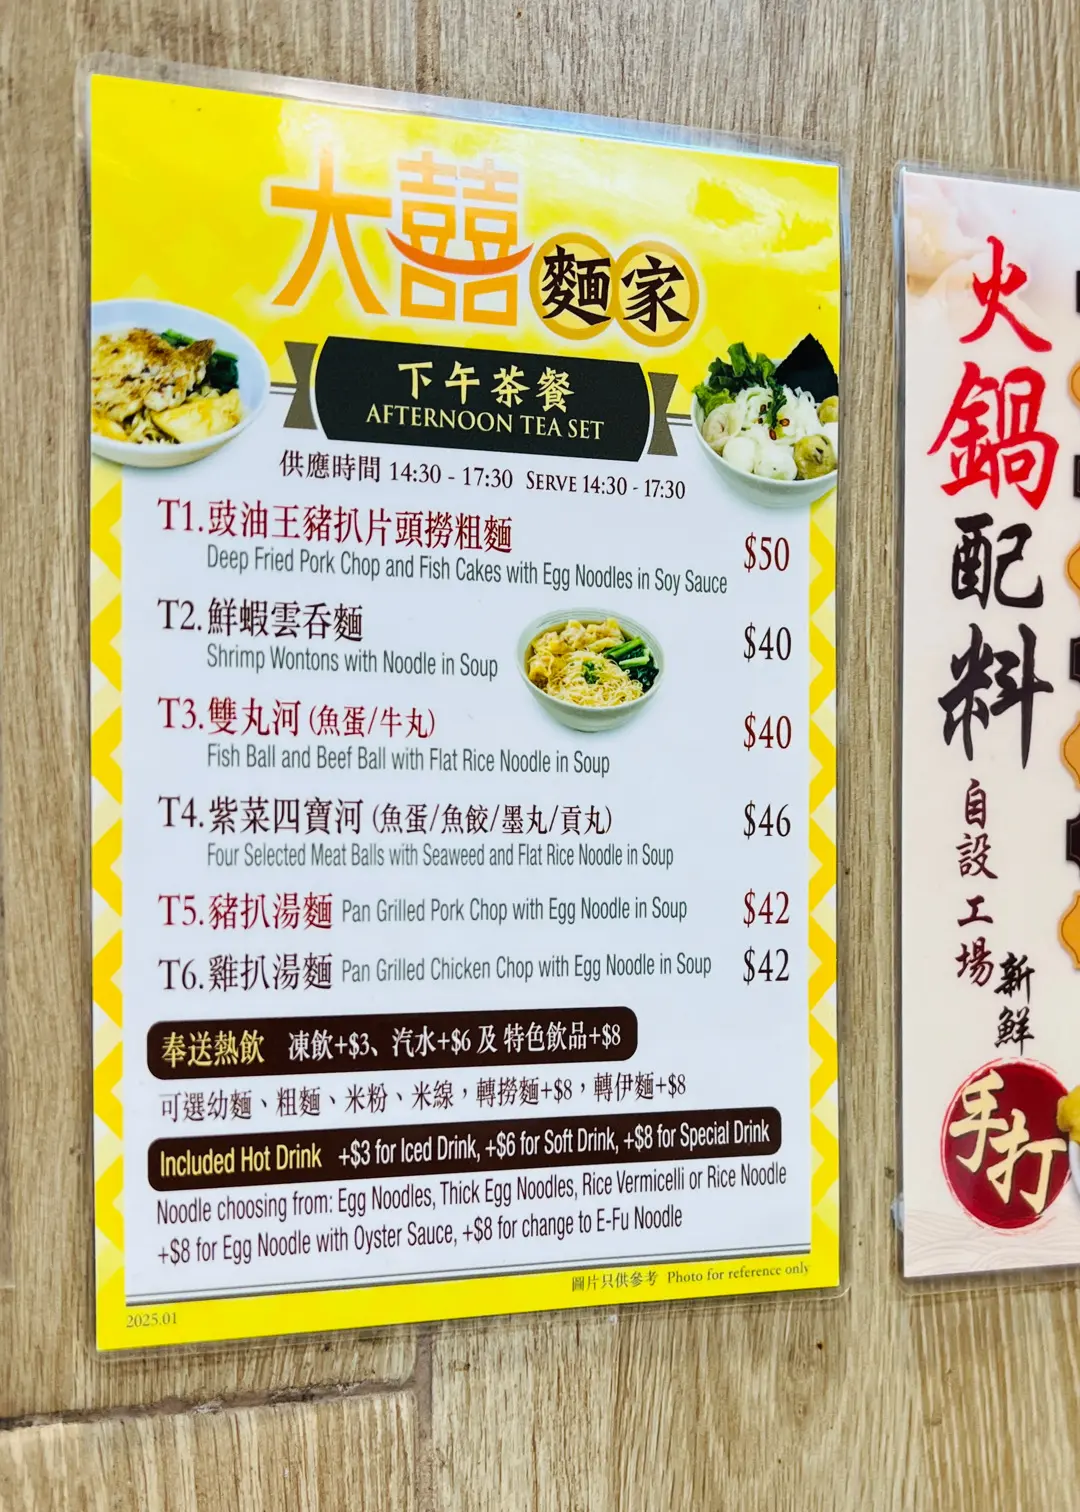 大囍麵家
下午茶餐
AFTERNOON TEA SET
供應時間 14:30 - 17:30 SERVE 14:30 - 17:30
T1.豉油王豬扒片頭撈粗麵
Deep Fried Pork Chop and Fish Cakes with Egg Noodles in Soy Sauce
$50
T2.鮮蝦雲吞麵
Shrimp Wontons with Noodle in Soup
$40
T3.雙丸河 (魚蛋/牛丸)
Fish Ball and Beef Ball with Flat Rice Noodle in Soup
$40
T4.紫菜四寶河 (魚蛋/魚餃/墨丸/貢丸)
Four Selected Meat Balls with Seaweed and Flat Rice Noodle in Soup
$46
T5.豬扒湯麵 Pan Grilled Pork Chop with Egg Noodle in Soup $42
T6.雞扒湯麵 Pan Grilled Chicken Chop with Egg Noodle in Soup $42
奉送熱飲 凍飲+$3、汽水+$6 及 特色飲品+$8
可選幼麵、粗麵、米粉、米線，轉撈麵+$8，轉伊麵+$8
Included Hot Drink +$3 for Iced Drink, +$6 for Soft Drink, +$8 for Special Drink
Noodle choosing from: Egg Noodles, Thick Egg Noodles, Rice Vermicelli or Rice Noodle
+$8 for Egg Noodle with Oyster Sauce, +$8 for change to E-Fu Noodle
圖片只供參考 Photo for reference only
2025.01
火鍋配料
自設工場
新鮮
手打